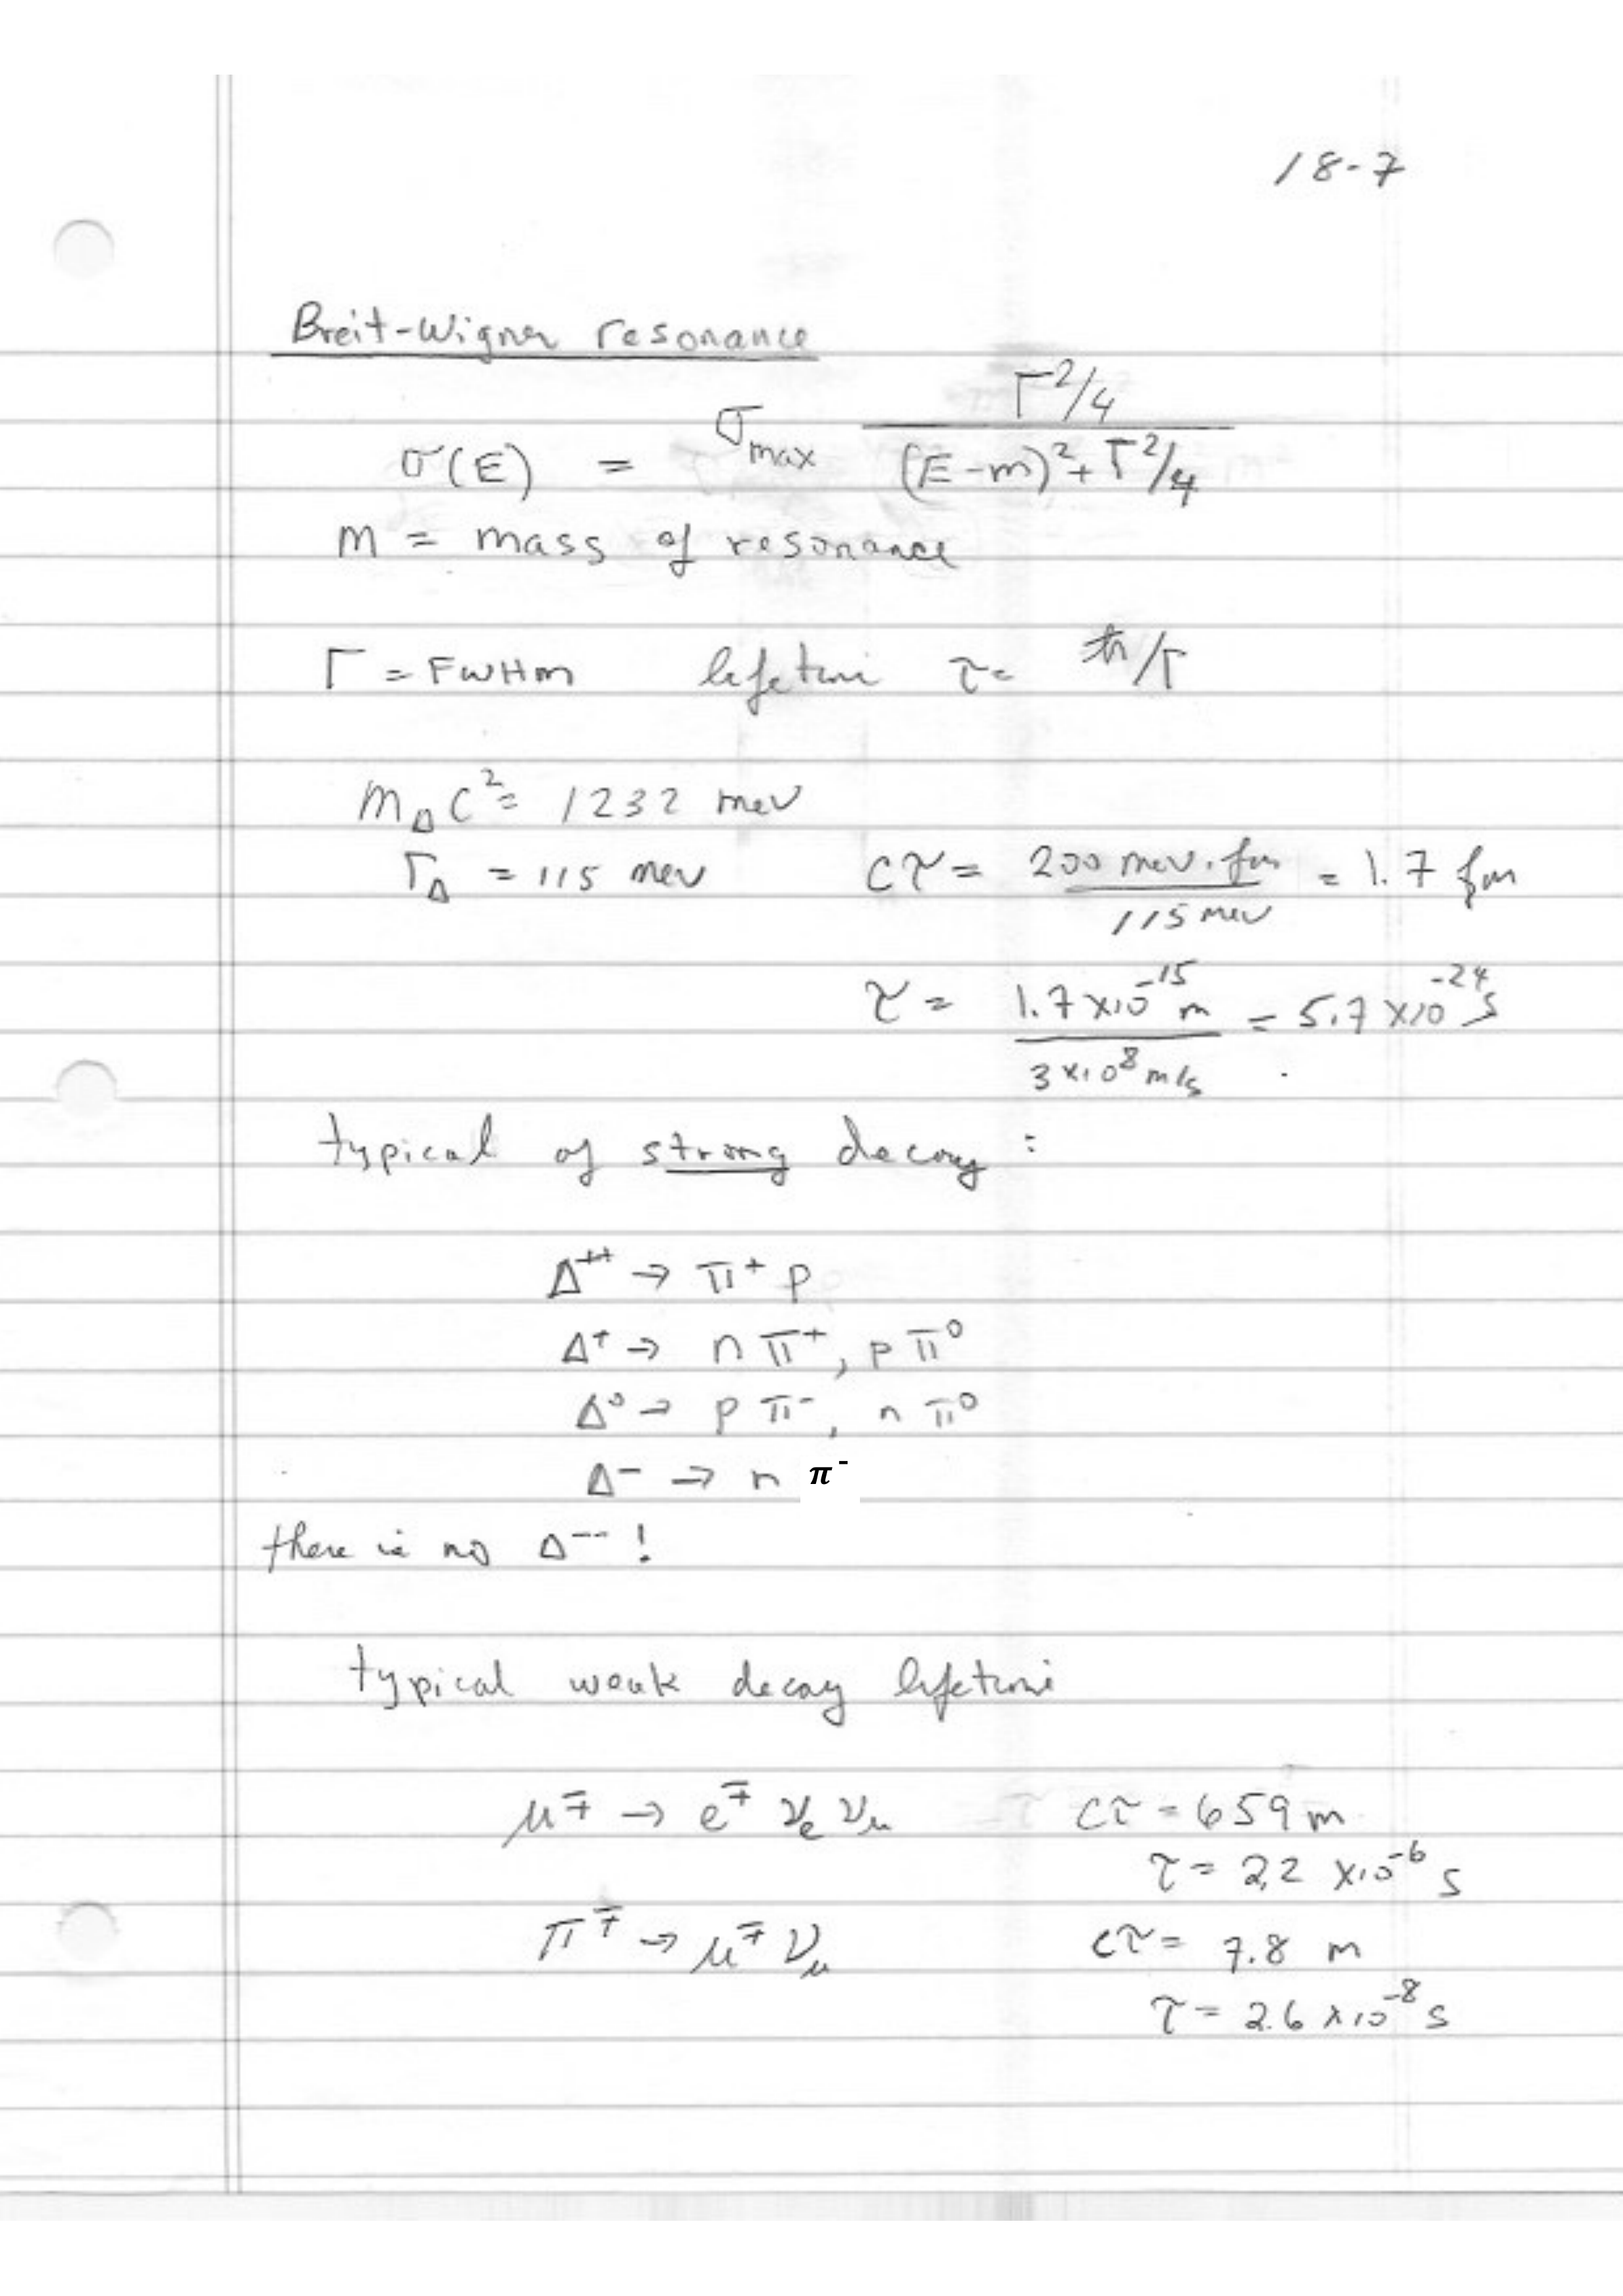 18-7
Breit-Wigner resonance
σ(E) = σmax Γ²/4 / (E-m)² + Γ²/4
m = mass of resonance
Γ = FWHM lifetime τ = ħ/Γ
mΔc² = 1232 MeV
ΓΔ = 115 MeV cτ = 200 MeV·fm / 115 MeV = 1.7 fm
τ = 1.7 x10⁻¹⁵ m / 3 x10⁸ m/s = 5.7 x10⁻²⁴ s
typical of strong decay :
Δ⁺⁺ → π⁺ p
Δ⁺ → n π⁺, p π⁰
Δ⁰ → p π⁻, n π⁰
Δ⁻ → n π⁻
there is no Δ⁻⁻ !
typical weak decay lifetime
μ∓ → e∓ νe νμ cτ = 659 m
τ = 2.2 x10⁻⁶ s
π∓ → μ∓ νμ cτ = 7.8 m
τ = 2.6 x10⁻⁸ s